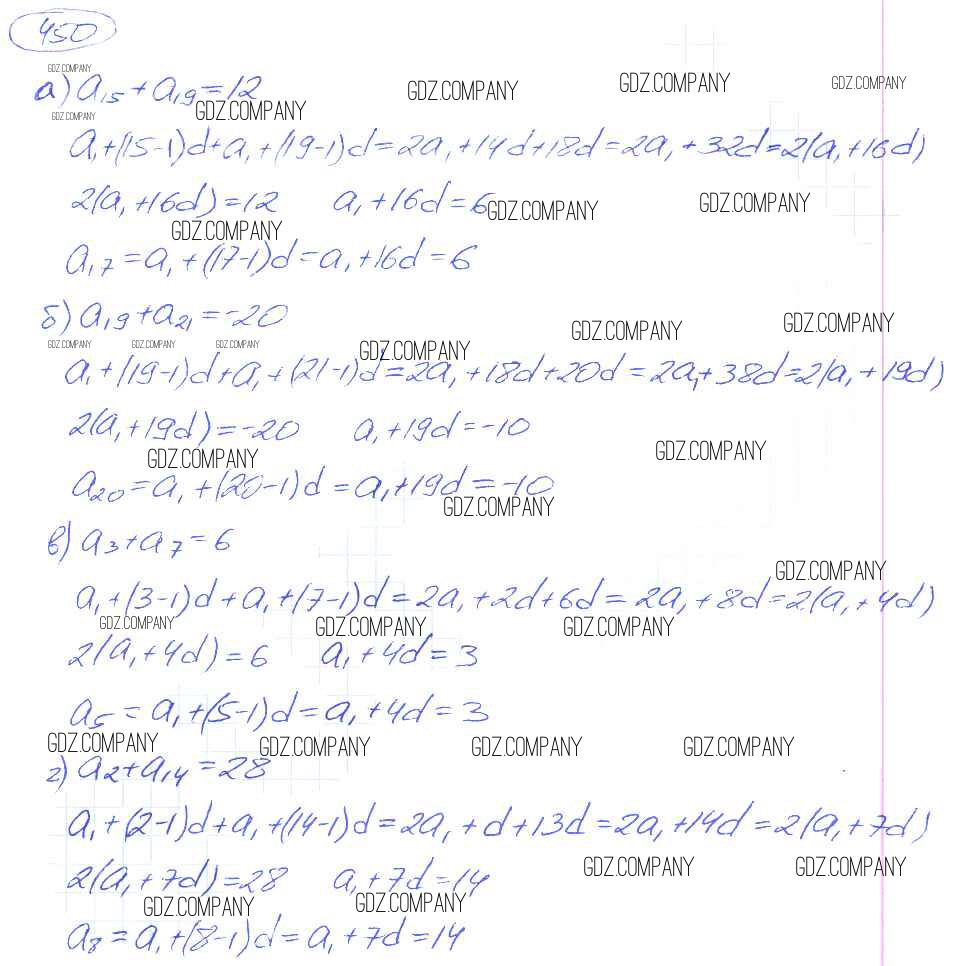 450
GDZ.COMPANY
а) a₁₅ + a₁₉ = 12 GDZ.COMPANY GDZ.COMPANY GDZ.COMPANY GDZ.COMPANY
GDZ.COMPANY
a₁ + (15-1)d + a₁ + (19-1)d = 2a₁ + 14d + 18d = 2a₁ + 32d = 2(a₁ + 16d)
2(a₁ + 16d) = 12 a₁ + 16d = 6 GDZ.COMPANY GDZ.COMPANY
GDZ.COMPANY
a₁₇ = a₁ + (17-1)d = a₁ + 16d = 6
б) a₁₉ + a₂₁ = -20 GDZ.COMPANY GDZ.COMPANY
GDZ.COMPANY GDZ.COMPANY GDZ.COMPANY GDZ.COMPANY
a₁ + (19-1)d + a₁ + (21-1)d = 2a₁ + 18d + 20d = 2a₁ + 38d = 2(a₁ + 19d)
2(a₁ + 19d) = -20 a₁ + 19d = -10
GDZ.COMPANY GDZ.COMPANY
a₂₀ = a₁ + (20-1)d = a₁ + 19d = -10
GDZ.COMPANY
в) a₃ + a₇ = 6
GDZ.COMPANY
a₁ + (3-1)d + a₁ + (7-1)d = 2a₁ + 2d + 6d = 2a₁ + 8d = 2(a₁ + 4d)
GDZ.COMPANY GDZ.COMPANY GDZ.COMPANY
2(a₁ + 4d) = 6 a₁ + 4d = 3
a₅ = a₁ + (5-1)d = a₁ + 4d = 3
GDZ.COMPANY GDZ.COMPANY GDZ.COMPANY GDZ.COMPANY
г) a₂ + a₁₄ = 28
a₁ + (2-1)d + a₁ + (14-1)d = 2a₁ + d + 13d = 2a₁ + 14d = 2(a₁ + 7d)
2(a₁ + 7d) = 28 a₁ + 7d = 14 GDZ.COMPANY GDZ.COMPANY
GDZ.COMPANY GDZ.COMPANY
a₈ = a₁ + (8-1)d = a₁ + 7d = 14